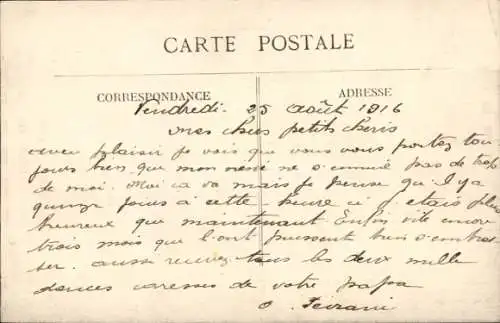 CARTE POSTALE
CORRESPONDANCE
ADRESSE
Vendredi 25 août 1916
mes chers petits chéris
avec plaisir je vois que vous vous portez tou-
jours bien que mon néné ne s'ennuie pas de trop
de moi. Moi ca va mais je pense qu'il y a
quinze jours à cette heure ci j'étais plus
heureux que maintenant Enfin vite encore
trois mois que l'on puissent bien s'embras
ser. aussi recevez tous les deux mille
douces caresses de votre papa